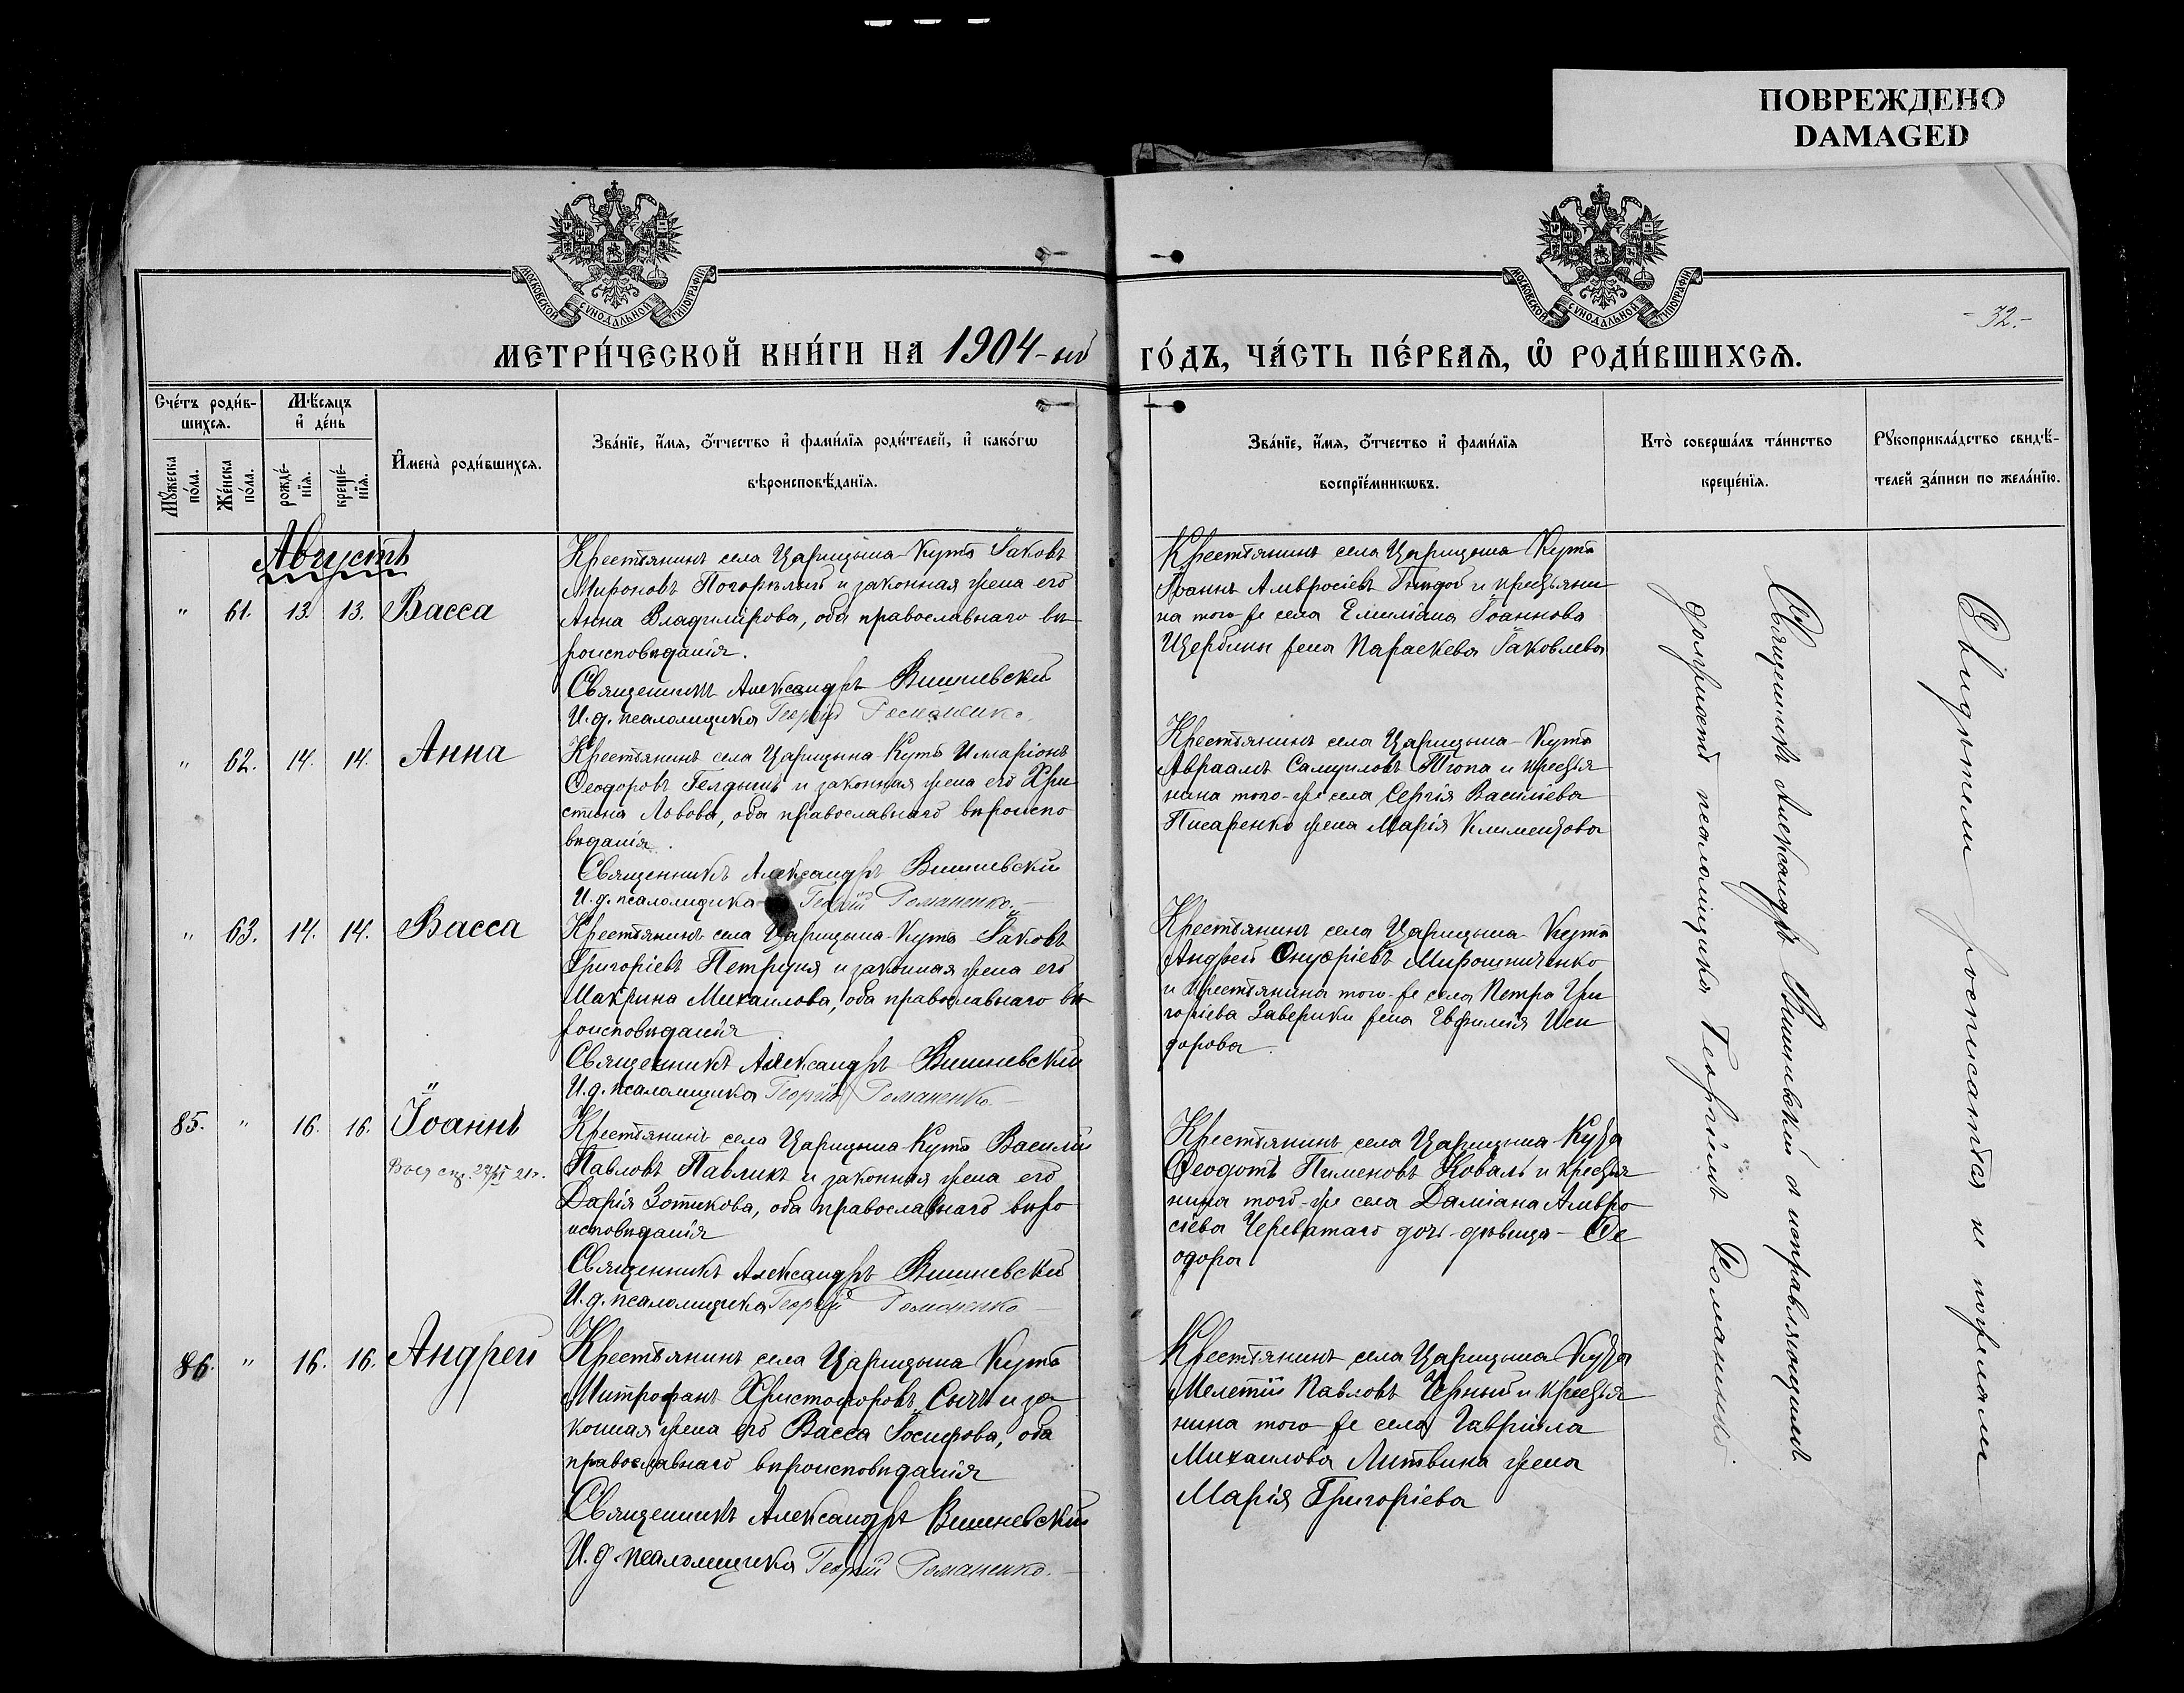 ПОВРЕЖДЕНО
DAMAGED
МОСКОВСКОЙ СѴНОДАЛЬНОЙ ТИПОГРАФІИ
МОСКОВСКОЙ СѴНОДАЛЬНОЙ ТИПОГРАФІИ
- 32. -
МЕТРИ́ЧЕСКОЙ КНИ́ГИ НА 1904-ый ГО́ДЪ, ЧА́СТЬ ПЕ́РВАѦ, Ѡ҆ РОДИ́ВШИХСѦ.
Сче́тъ роди́в-
шихсѧ.
Мѣ́сѧцъ
и҆ де́нь
Мꙋ́жеска
по́ла.
Же́нска
по́ла.
рожде́-
нїѧ.
креще́-
нїѧ.
И҆мена̀ роди́вшихсѧ.
Зва́нїе, и҆́мѧ, ѻ҆́тчество и҆ фами́лїѧ роди́телей, и҆ како́гѡ
вѣроисповѣ́данїѧ.
Зва́нїе, и҆́мѧ, ѻ҆́тчество и҆ фами́лїѧ
воспрїе́мникѡвъ.
Кто̀ соверша́лъ та́инство
креще́нїѧ.
Рꙋкоприкла́дство свидѣ́-
телей за́писи по жела́нїю.
Августъ
" 61. 13. 13. Васса
Крестьянинъ села Царицына-Кута Іаковъ
Мироновъ Погорѣлый и законная жена его
Анна Владимірова, оба православнаго вѣ-
роисповѣданія.
Священникъ Александръ Вишневскій
И. д. псаломщика Георгій Романенко.
Крестьянинъ села Царицына Кута
Іоаннъ Амвросіевъ и крестьяни
на того-же села Емиліана Іоаннова
Щербины жена Параскева Іаковлева
" 62. 14. 14. Анна
Крестьянинъ села Царицына-Кута Иларіонъ
Ѳеодоровъ Гелдышъ и законная жена его Хри
стина Львова, оба православнаго вѣроиспо
вѣданія.
Священникъ Александръ Вишневскій
И. д. псаломщика Георгій Романенко.
Крестьянинъ села Царицына-Кута
Авраамъ Самуиловъ и крестья
нина того-же села Сергія Василіева
Писаренко жена Марія Климентова
" 63. 14. 14. Васса
Крестьянинъ села Царицына-Кута Іаковъ
Григоріевъ Петруня и законная жена его
Макрина Михаилова, оба православнаго вѣ-
роисповѣданія
Священникъ Александръ Вишневскій
И. д. псаломщика Георгій Романенко.
Крестьянинъ села Царицына Кута
Андрей Онуфріевъ Мирошниченко
и крестьянина того-же села Петра Гри
горіева Заверюхи жена Евфимія Иси
дорова.
85. " 16. 16. Іоаннъ
Крестьянинъ села Царицына-Кута Василій
Павловъ Павликъ и законная жена его
Дарія Зотикова, оба православнаго вѣро
исповѣданія
Священникъ Александръ Вишневскій
И. д. псаломщика Георгій Романенко
Крестьянинъ села Царицына-Кута
Ѳеодотъ Пименовъ Коваль и крестья
нина того-же села Даміана Амвро
сіева Череватаго дочь-дѣвица - Ѳе
одора
86. " 16. 16. Андрей
Крестьянинъ села Царицына Кута
Митрофанъ Христофоровъ Сычъ и за
конная жена его Васса Іосифова, оба
православнаго вѣроисповѣданія
Священникъ Александръ Вишневскій
И. д. псаломщика Георгій Романенко.
Крестьянинъ села Царицына Кута
Мелетій Павловъ Черный и крестья
нина того же села Гавріила
Михаилова Литвина жена
Марія Григоріева
Священникъ Александръ Вишневскій съ исправляющимъ
должность псаломщика Георгіемъ Романенко.
Свидѣтели росписаться не пожелали